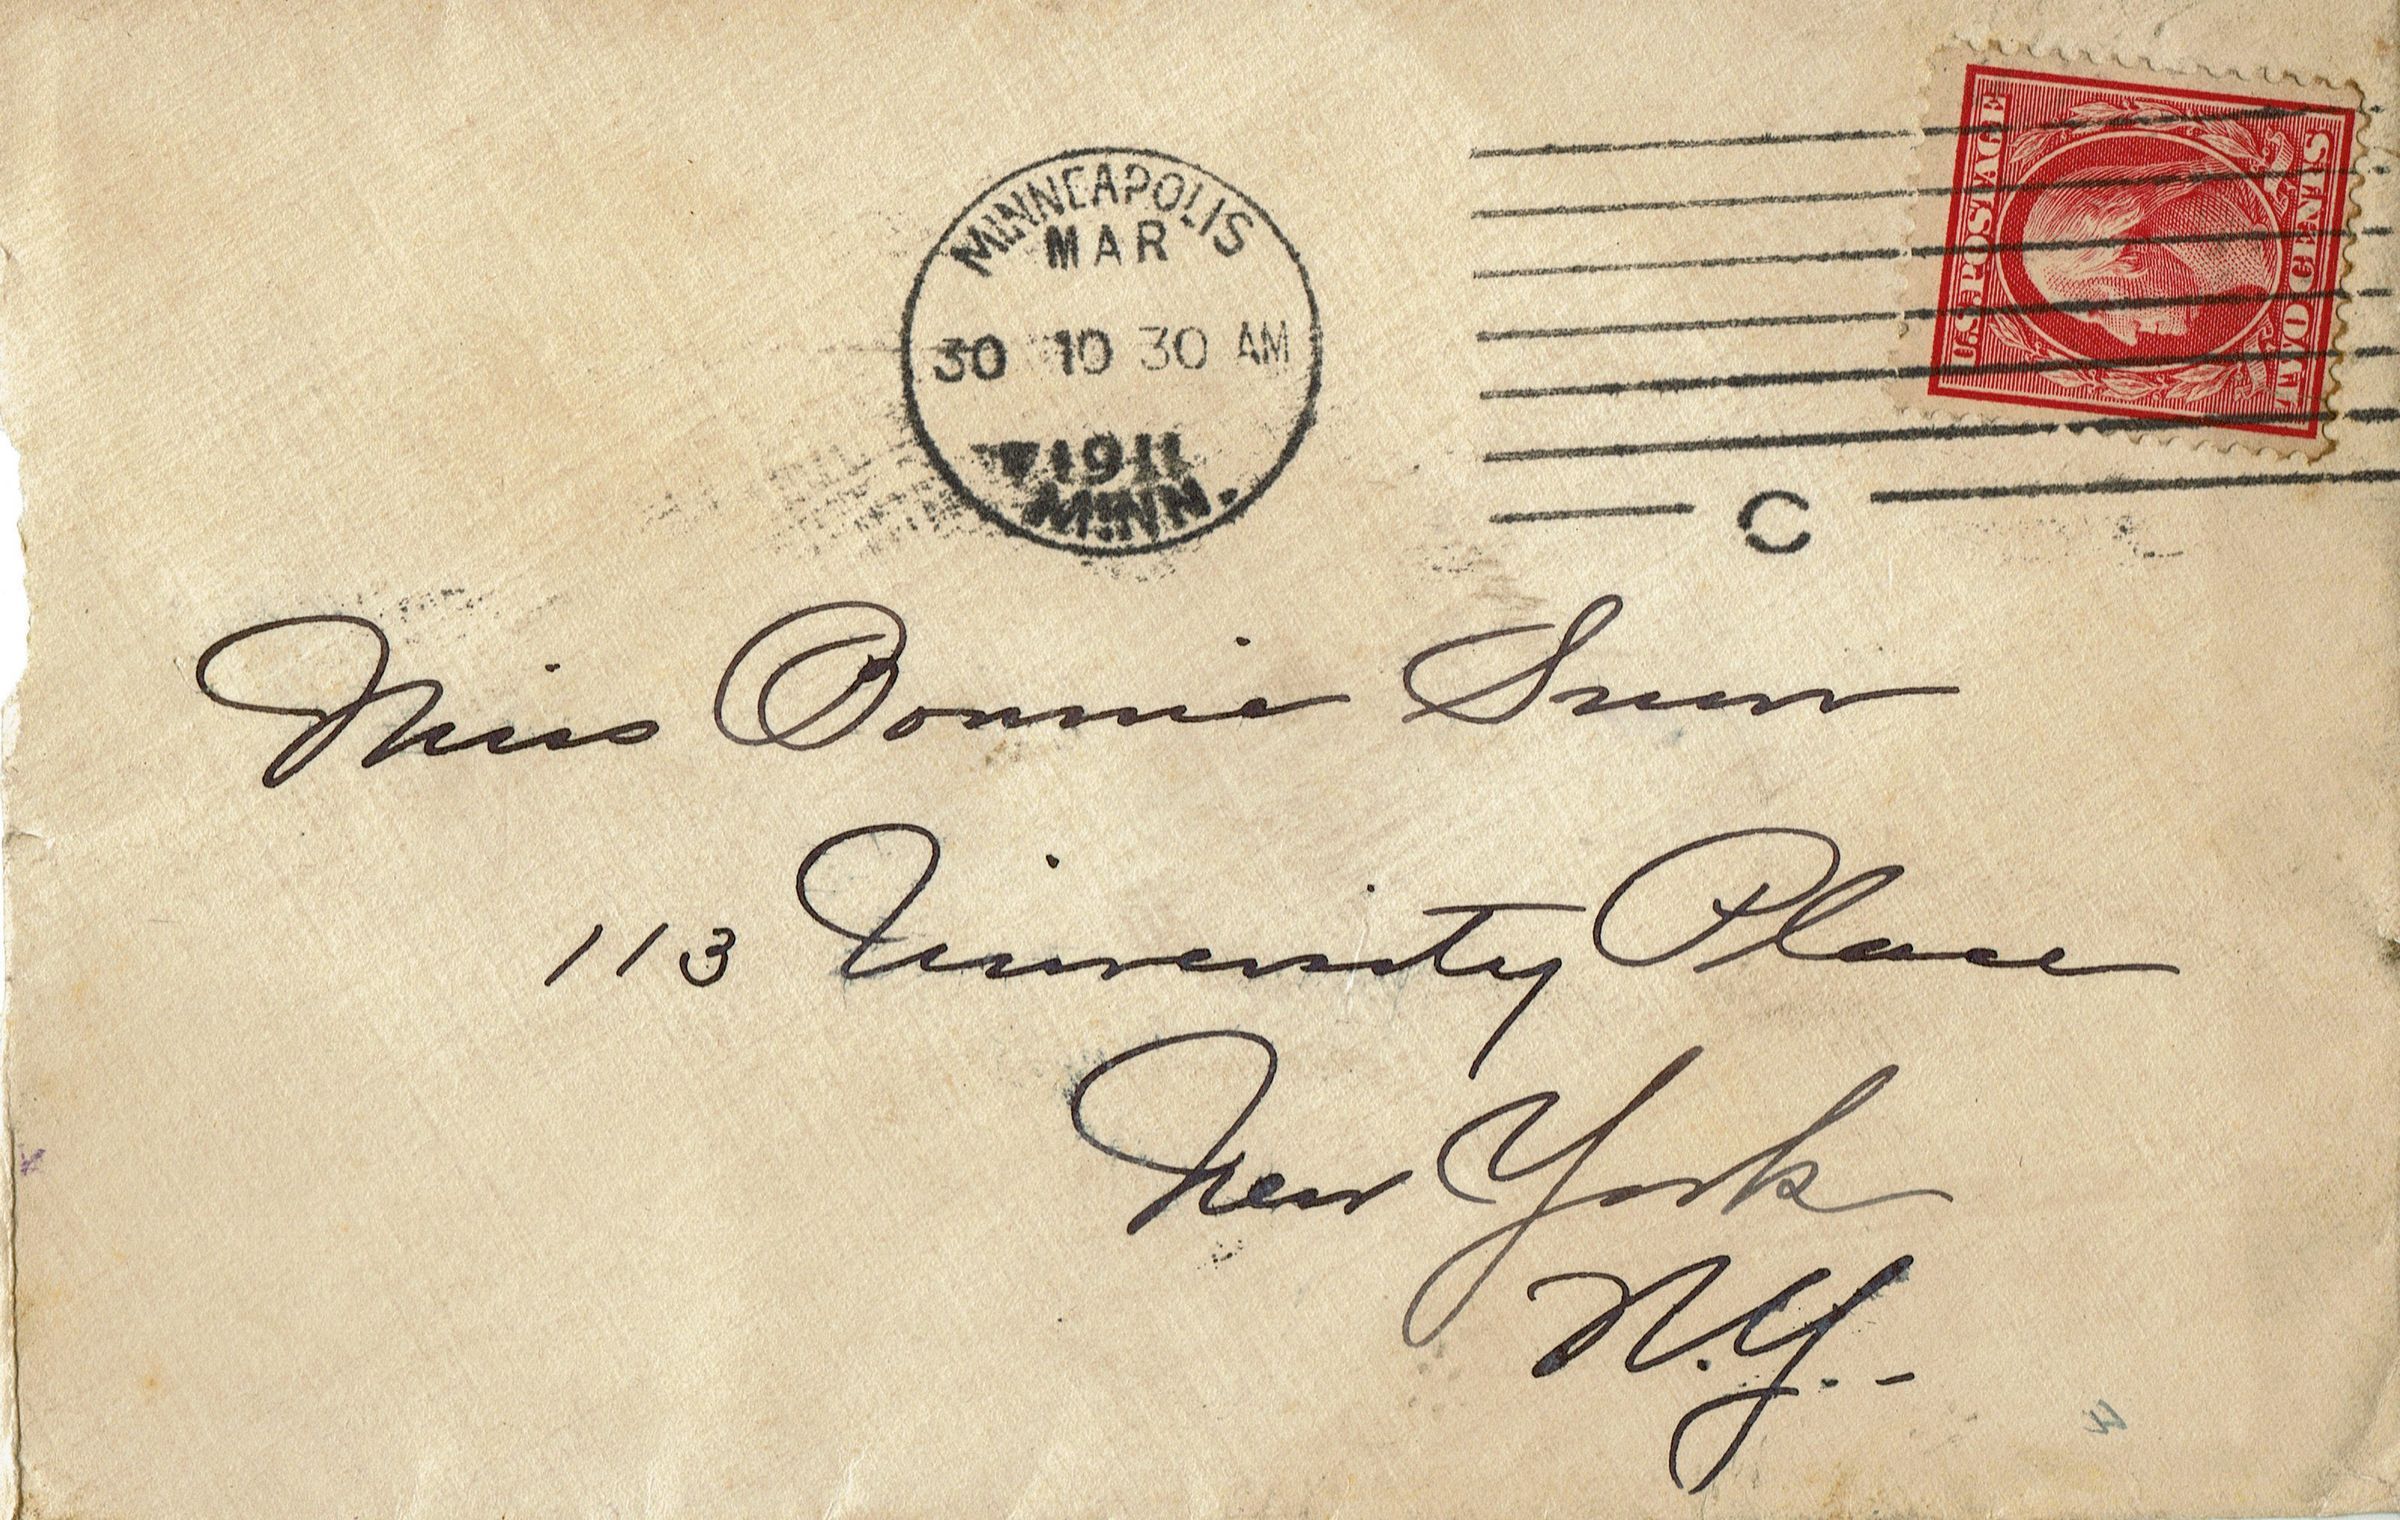 MINNEAPOLIS
MAR
30 10 30 AM
1911
MINN.
C
U.S. POSTAGE
TWO CENTS
Miss Bonnie Snow
113 University Place
New York
N.Y.-